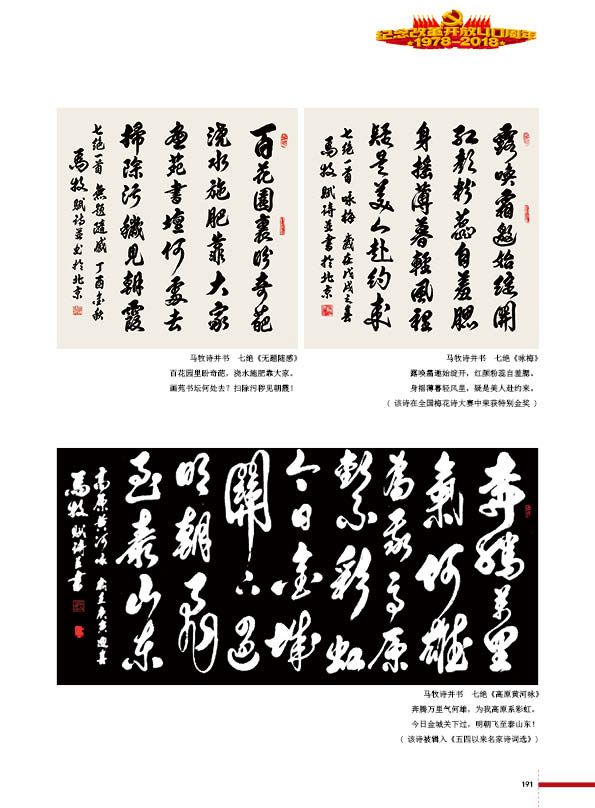 纪念改革开放40周年
1978-2018
百花園裏盼奇葩
澆水施肥靠大家
畫苑書壇何處去
掃除污穢見朝霞
七絶一首 無題隨感 丁酉金秋
馬牧賦詩並書於北京
马牧诗并书 七绝《无题随感》
百花园里盼奇葩，浇水施肥靠大家。
画苑书坛何处去？扫除污秽见朝霞！
露喚霜邀始綻開
紅顏粉蕊自羞腮
身搖薄暮輕風裡
疑是美人赴約來
七绝一首 咏梅 歲在戊戌之春
馬牧賦詩並書於北京
马牧诗并书 七绝《咏梅》
露唤霜邀始绽开，红颜粉蕊自羞腮。
身摇薄暮轻风里，疑是美人赴约来。
( 该诗在全国梅花诗大赛中荣获特别金奖 )
奔騰萬里
氣何雄
為我高原
繫彩虹
今日金城
關下過
明朝飛
至泰山東
高原黄河咏
馬牧賦詩並書
马牧诗并书 七绝《高原黄河咏》
奔腾万里气何雄，为我高原系彩虹。
今日金城关下过，明朝飞至泰山东！
( 该诗被辑入《五四以来名家诗词选》)
191